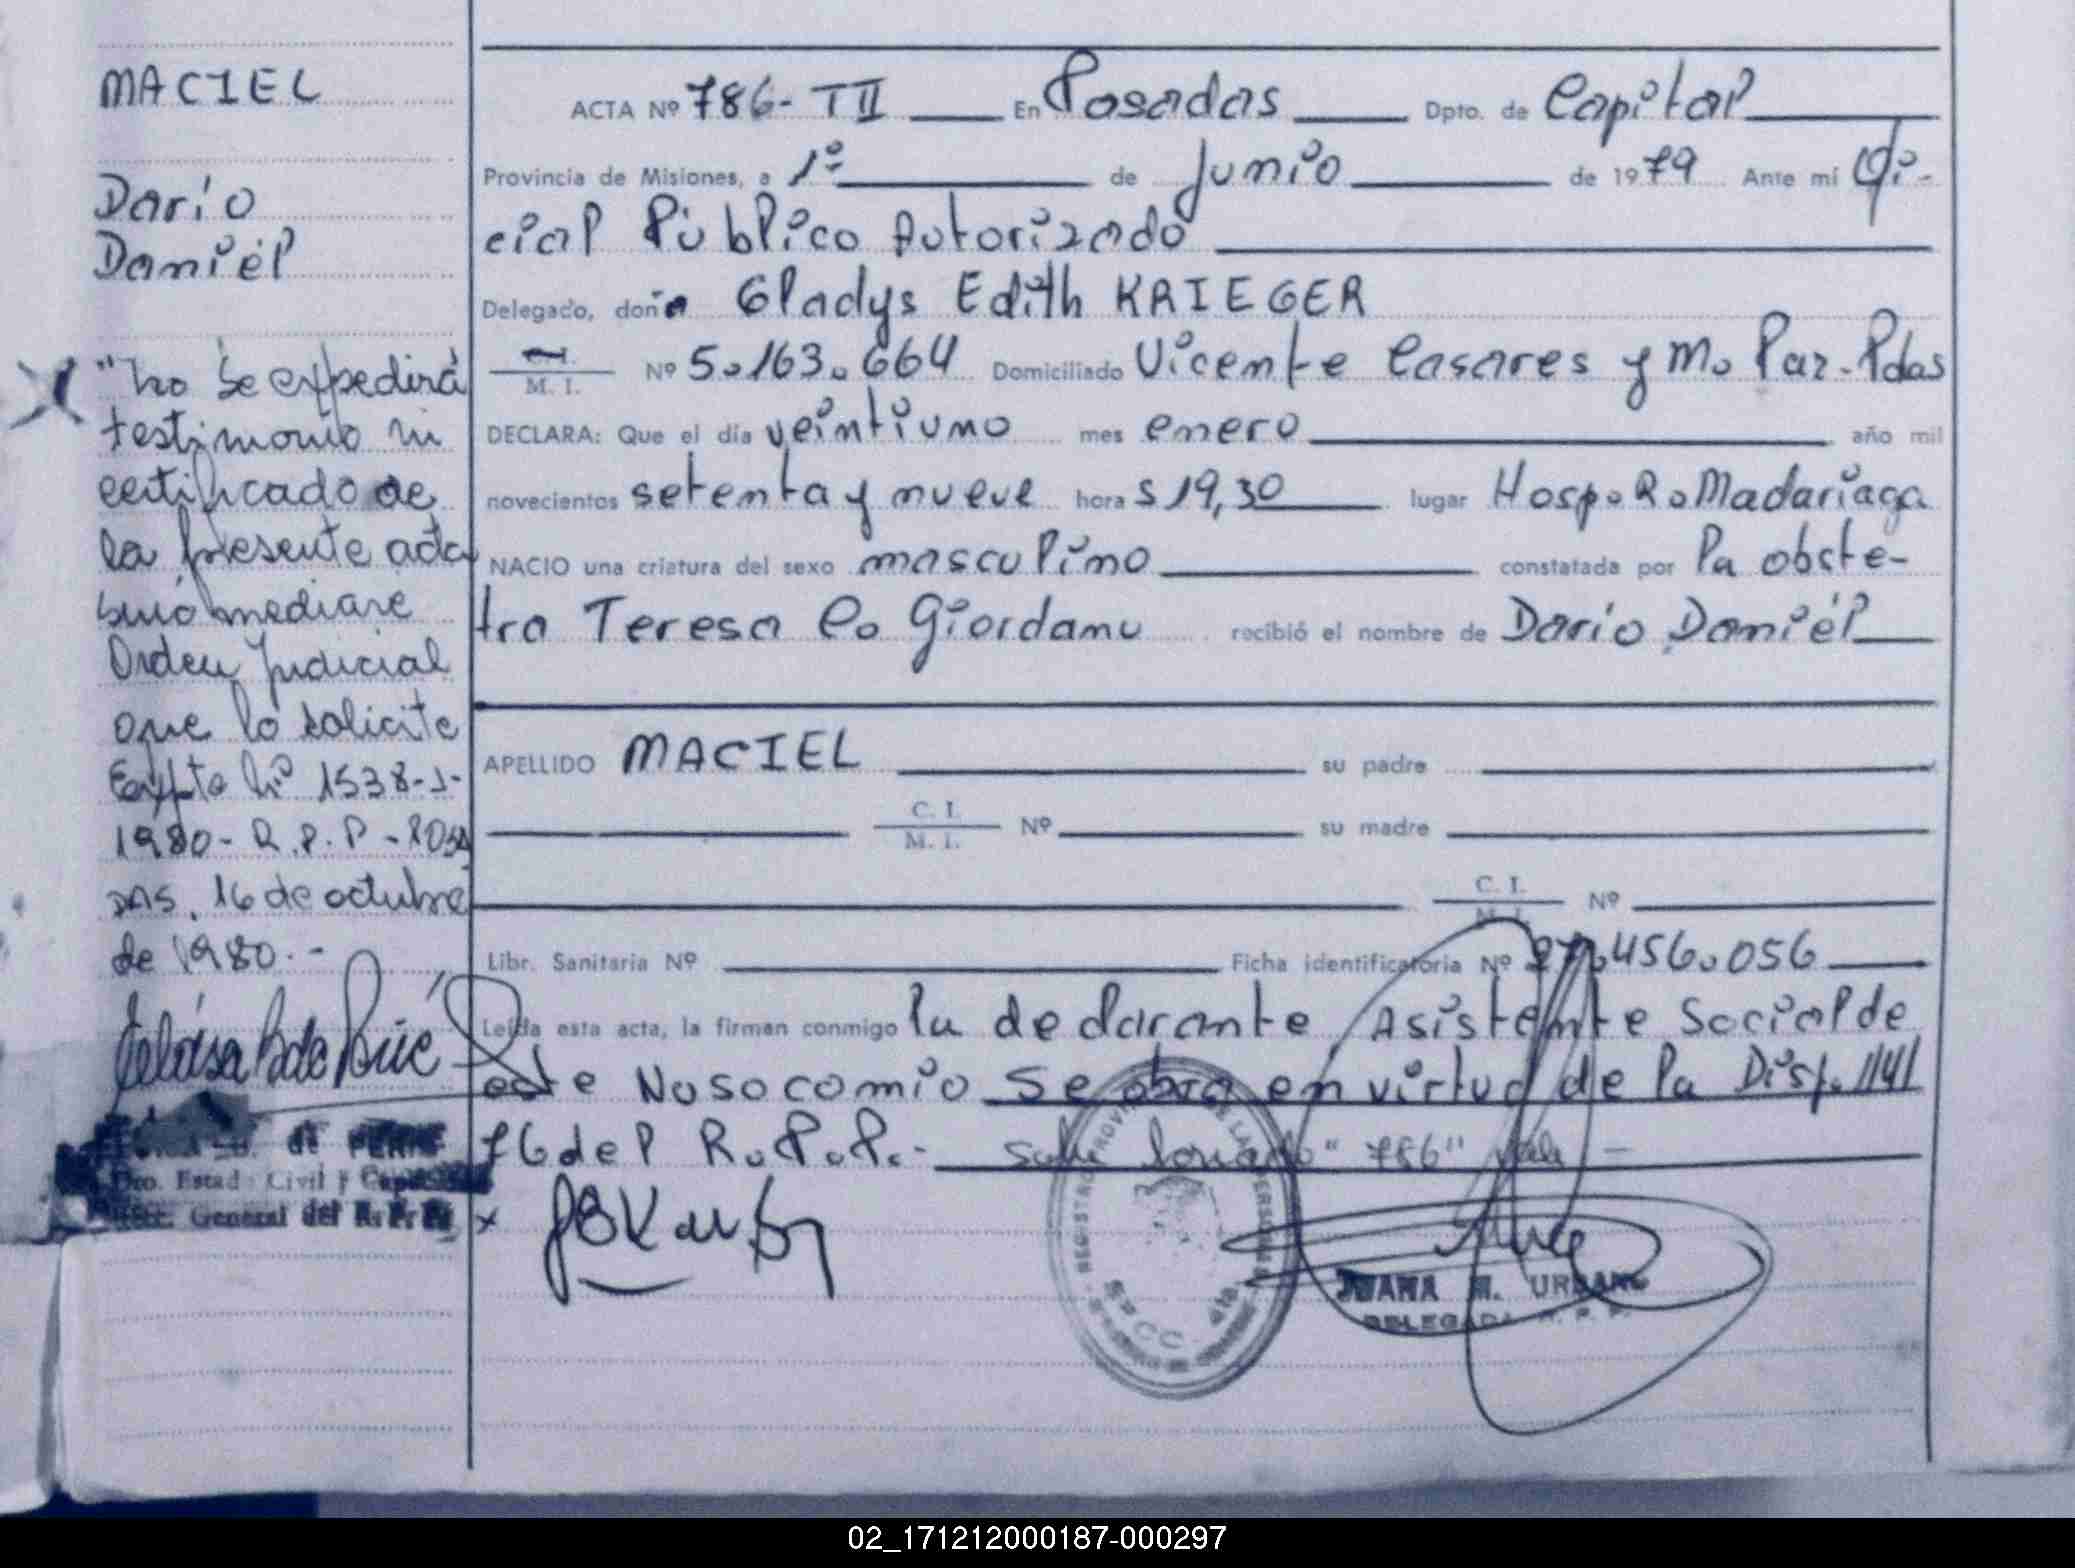 MACIEL
Darío
Daniél
"No se expedirá
testimonio ni
certificado de
la presente acta
sino mediare
Orden Judicial
que lo solicite
Expte Nº 1538-J-
1980- R.P.P - POSA
DAS, 16 de octubre
de 1980.-
Dto. Estad. Civil y Capac
General del R. P. P.
ACTA Nº 786- TII En Posadas Dpto. de Capital
Provincia de Misiones, a 1º de junio de 1979 Ante mi Ofi-
cial Público Autorizado
Delegado, doña Gladys Edith KRIEGER
C.I. M. I. Nº 5.163.664 Domiciliado Vicente Casares y M. Paz-Pdas
DECLARA: Que el día veintiuno mes enero año mil
novecientos setenta y nueve hora s 19,30 lugar Hosp. R. Madariaga
NACIO una criatura del sexo masculino constatada por la obste-
tra Teresa C. Giordano recibió el nombre de Darío Daniél
APELLIDO MACIEL su padre
C. I. M. I. Nº su madre
C. I. M. I. Nº
Libr. Sanitaria Nº Ficha identificatoria Nº 27.456.056
Leída esta acta, la firman conmigo la declarante, Asistente Social de
este Nosocomio Se obra en virtud de la Disp. 1141
76 del R.P.P.- Sobre borrado "786" vale -
JUANA M. URBANO
DELEGADA R. P. P.
02_171212000187-000297